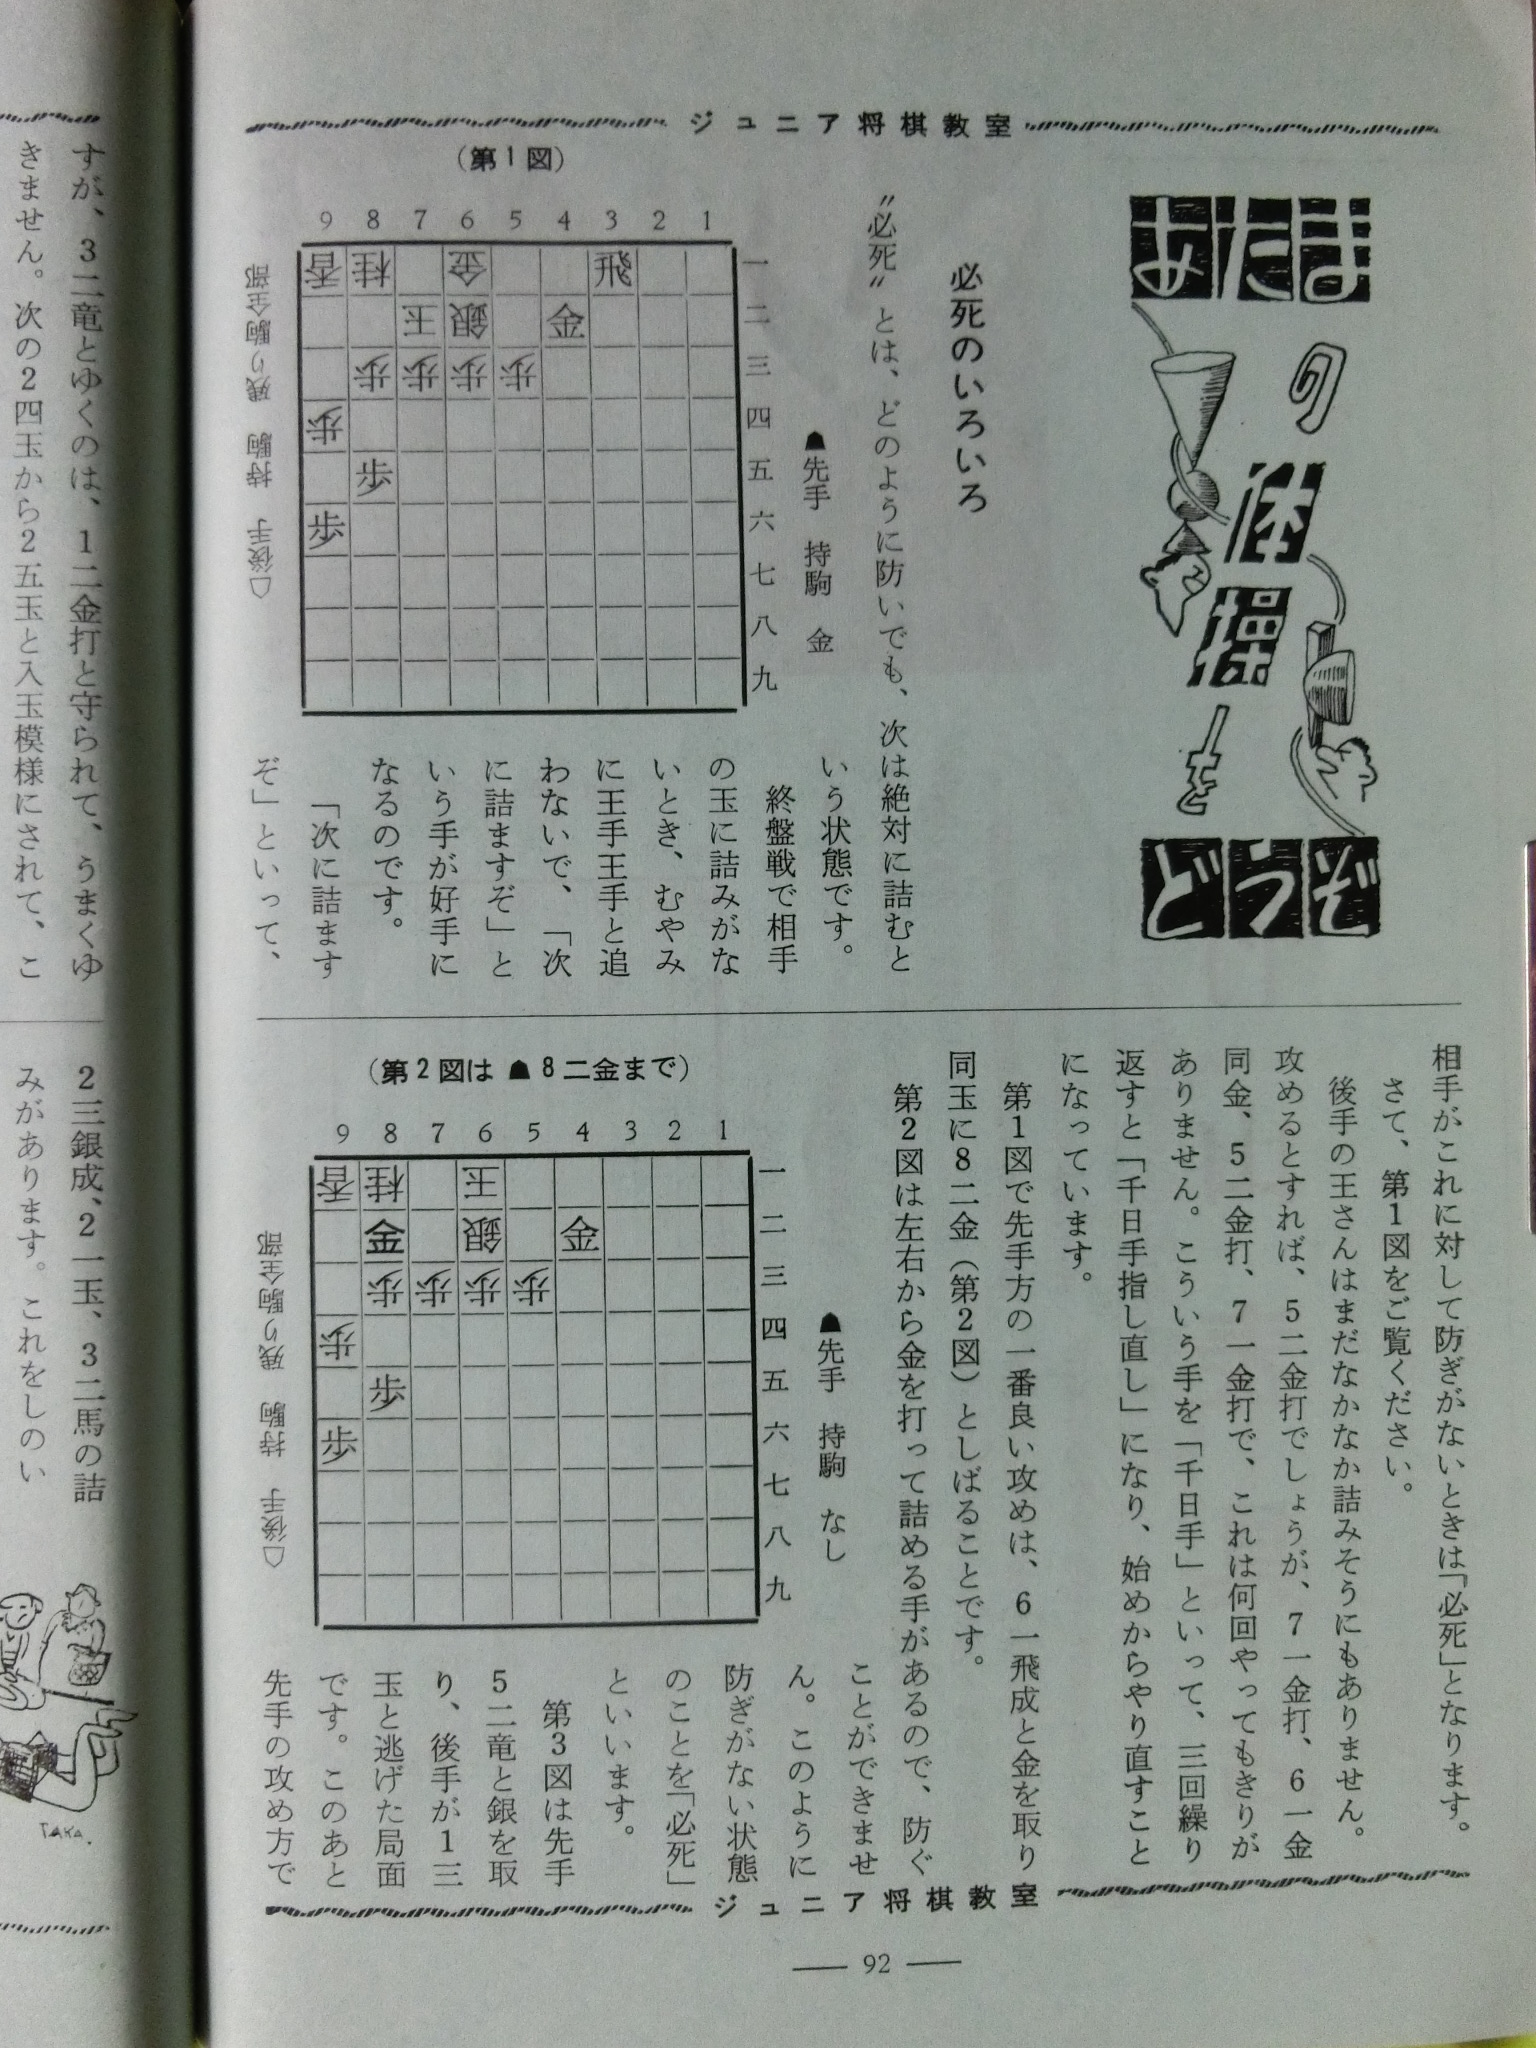 ジュニア将棋教室
あたま
の
体操
を
どうぞ
必死のいろいろ
〝必死〟とは、どのように防いでも、次は絶対に詰むと
いう状態です。
終盤戦で相手
の玉に詰みがな
いとき、むやみ
に王手王手と追
わないで、「次
に詰ますぞ」と
いう手が好手に
なるのです。
「次に詰ます
ぞ」といって、
(第1図)
9 8 7 6 5 4 3 2 1
香 桂 金 飛 一
王 銀 金 二
歩 歩 歩 歩 三
歩 四
歩 五
歩 六
七
八
九
☗先手 持駒 金
☖後手 持駒 残り駒全部
相手がこれに対して防ぎがないときは「必死」となります。
さて、第1図をご覧ください。
後手の王さんはまだなかなか詰みそうにもありません。
攻めるとすれば、5二金打でしょうが、7一金打、6一金
同金、5二金打、7一金打で、これは何回やってもきりが
ありません。こういう手を「千日手」といって、三回繰り
返すと「千日手指し直し」になり、始めからやり直すこと
になっています。
第1図で先手方の一番良い攻めは、6一飛成と金を取り
同玉に8二金(第2図)としばることです。
第2図は左右から金を打って詰める手があるので、防ぐ
ことができませ
ん。このように
防ぎがない状態
のことを「必死」
といいます。
第3図は先手
5二竜と銀を取
り、後手が1三
玉と逃げた局面
です。このあと
先手の攻め方で
(第2図は☗8二金まで)
9 8 7 6 5 4 3 2 1
香 桂 王 一
金 銀 金 二
歩 歩 歩 歩 三
歩 四
歩 五
歩 六
七
八
九
☗先手 持駒 なし
☖後手 持駒 残り駒全部
ジュニア将棋教室
— 92 —
すが、3二竜とゆくのは、1二金打と守られて、うまくゆ
きません。次の2四玉から2五玉と入玉模様にされて、こ
2三銀成、2一玉、3二馬の詰
みがあります。これをしのい
TAKA.